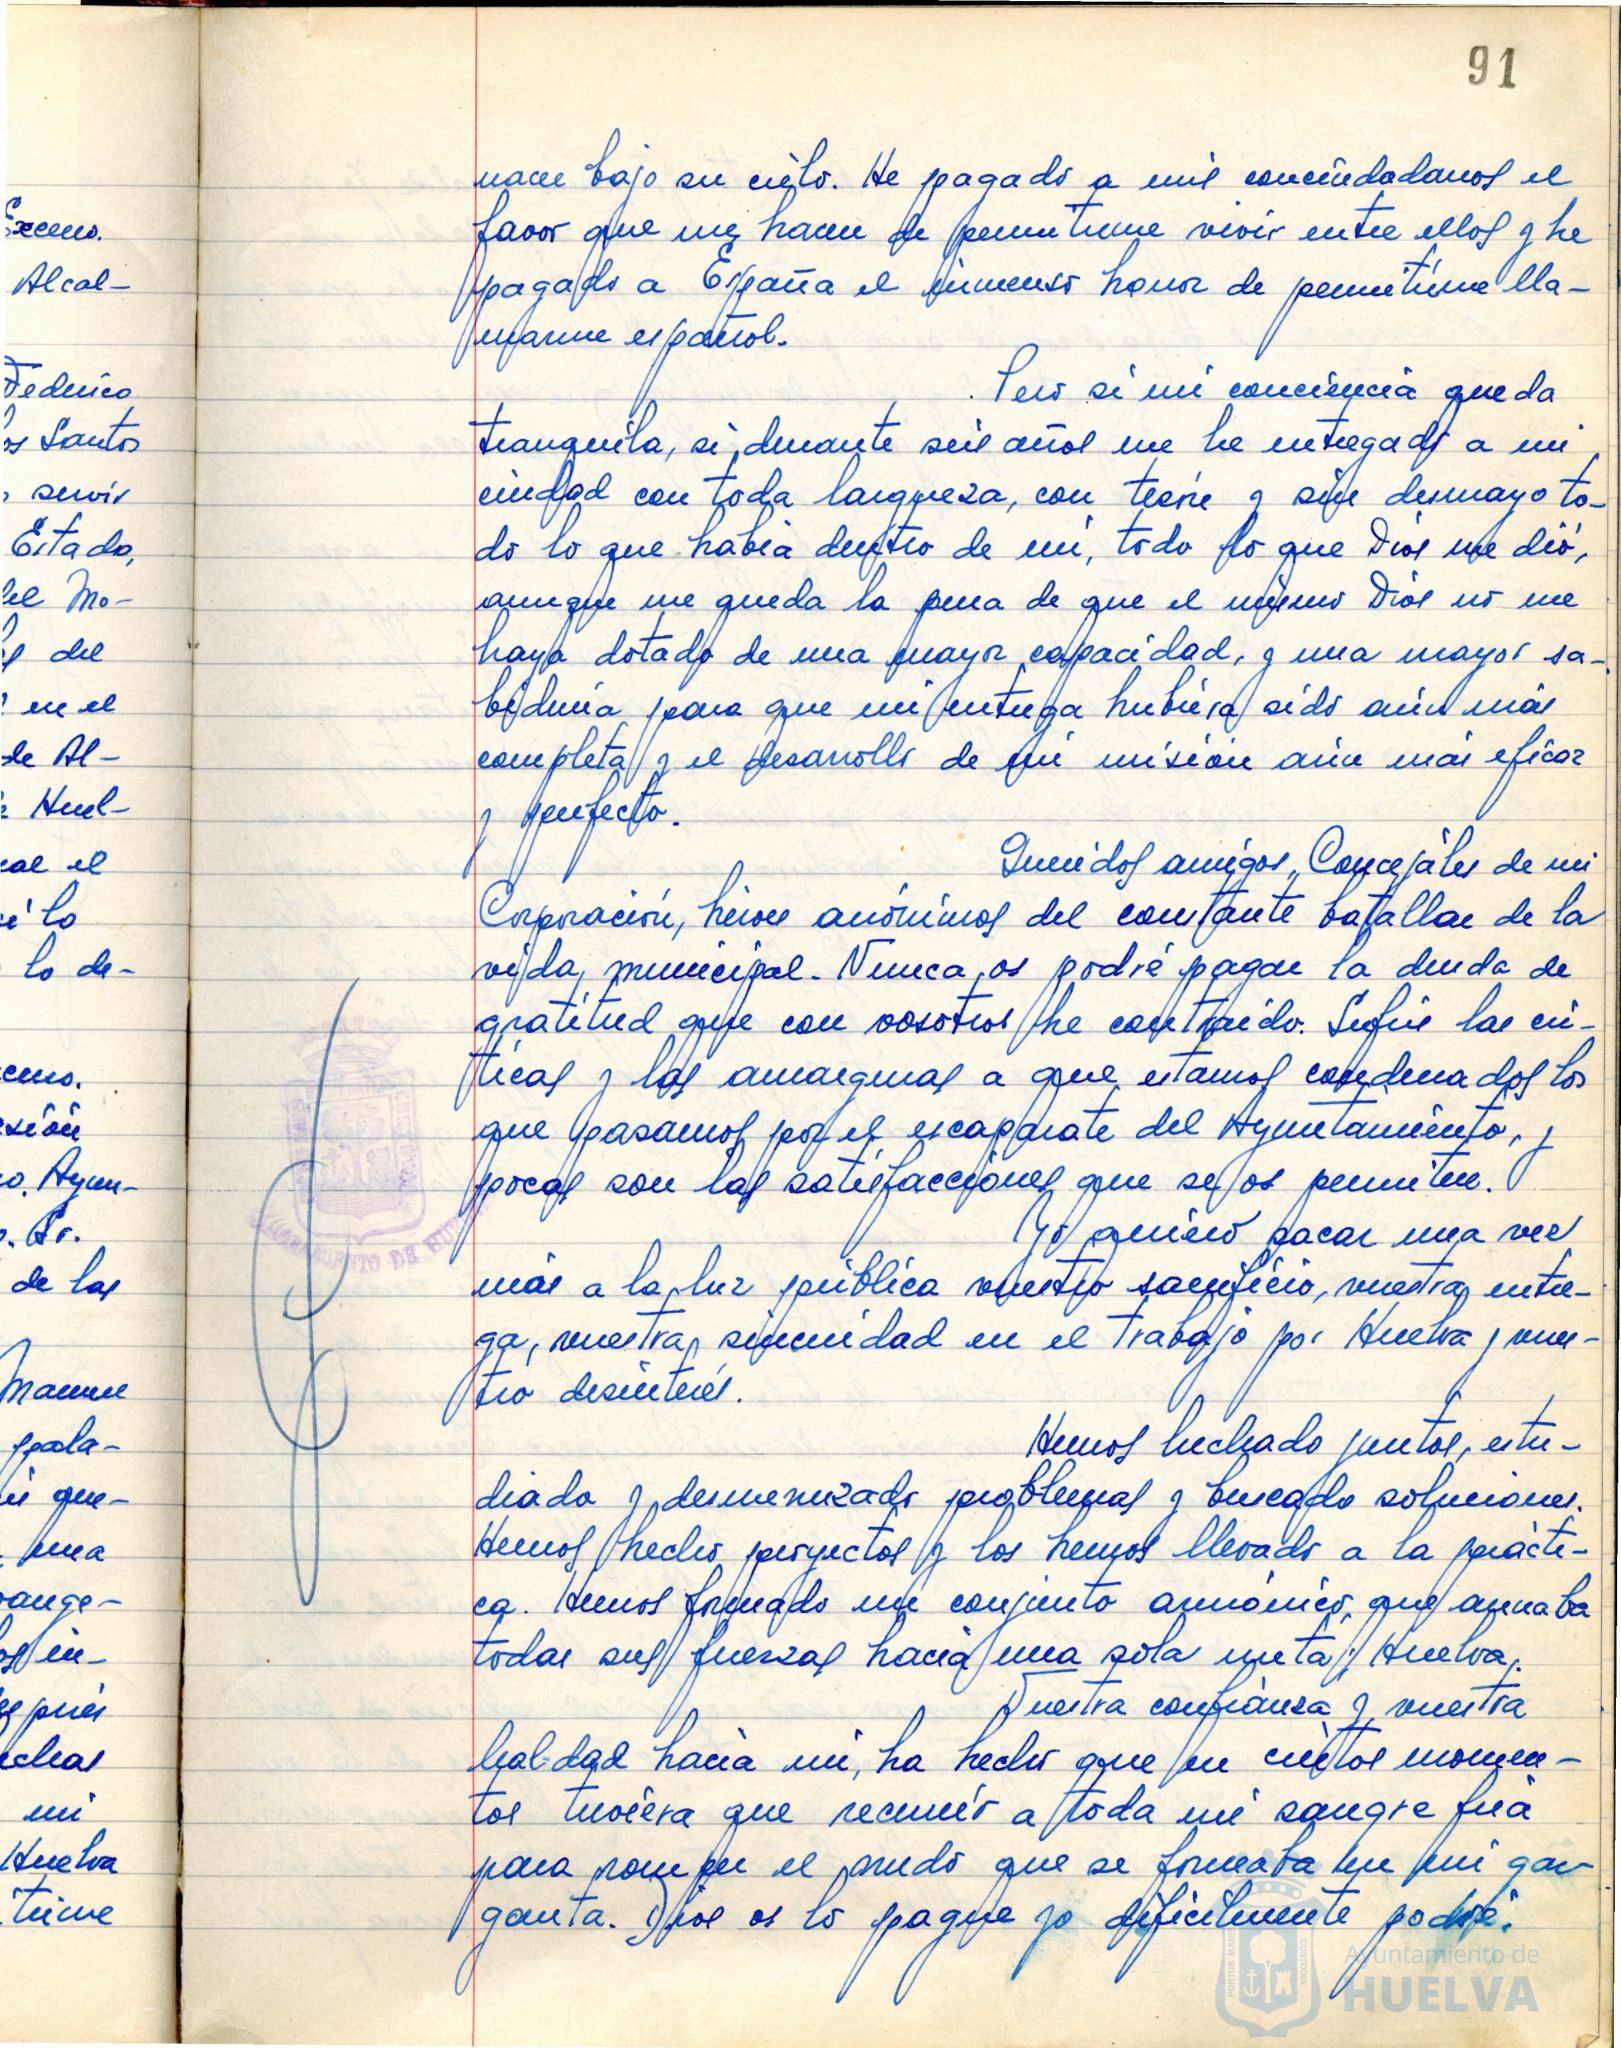 91
nace bajo su cielo. He pagado a mis conciudadanos el
favor que me hacen de permitirme vivir entre ellos y he
pagado a España el inmenso honor de permitirme lla-
marme español.
Pero si mi conciencia queda
tranquila, si durante seis años me he entregado a mi
ciudad con toda largueza, con tesón y sin desmayo to-
do lo que había dentro de mi, todo lo que Dios me dió,
aunque me queda la pena de que el mismo Dios no me
haya dotado de una mayor capacidad, y una mayor sa-
biduría para que mi entrega hubiera sido aún más
completa y el desarrollo de mi misión aún más eficaz
y perfecto.
Queridos amigos, Concejáles de mi
Corporación, héroes anónimos del constante batallar de la
vida municipal. Nunca os podré pagar la deuda de
gratitud que con vosotros he contraido. Sufrís las crí-
ticas y las amarguras a que estamos condenados los
que pasamos por el escaparate del Ayuntamiento, y
pocas son las satisfacciones que se os permiten.
Yo quiero sacar una vez
más a la luz pública vuestro sacrificio, vuestra entre-
ga, vuestra sinceridad en el trabajo por Huelva y vues-
tro desinterés.
Hemos luchado juntos, estu-
diado y desmenuzado problemas y buscado soluciones.
Hemos hecho proyectos y los hemos llevado a la prácti-
ca. Hemos formado un conjunto armónico que aunaba
todas sus fuerzas hacia una sola meta: Huelva.
Vuestra confianza y vuestra
lealdad hacia mi, ha hecho que en ciertos momen-
tos tuviera que recurrir a toda mi sangre fria
para romper el nudo que se formaba en mi gar-
ganta. Dios os lo pague yo dificilmente podré.
Excmo.
Alcal-
Federico
os Santos
servir
Estado,
del Mo-
del
en el
de Al-
Huel-
el
lo
lo de-
cmo.
esión
o. Ayun-
Sr.
de las
Manuel
pala-
que-
una
ange-
in-
spués
uchas
mi
Huelva
AYUNTAMIENTO DE HUELVA
PORTUS MARIS
CUSTODIA
Ayuntamiento de
HUELVA